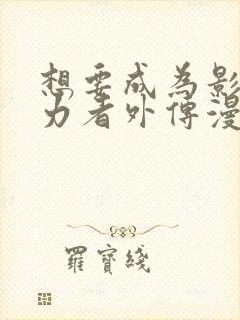 想要成為影
力者外傳漫
羅寶綫